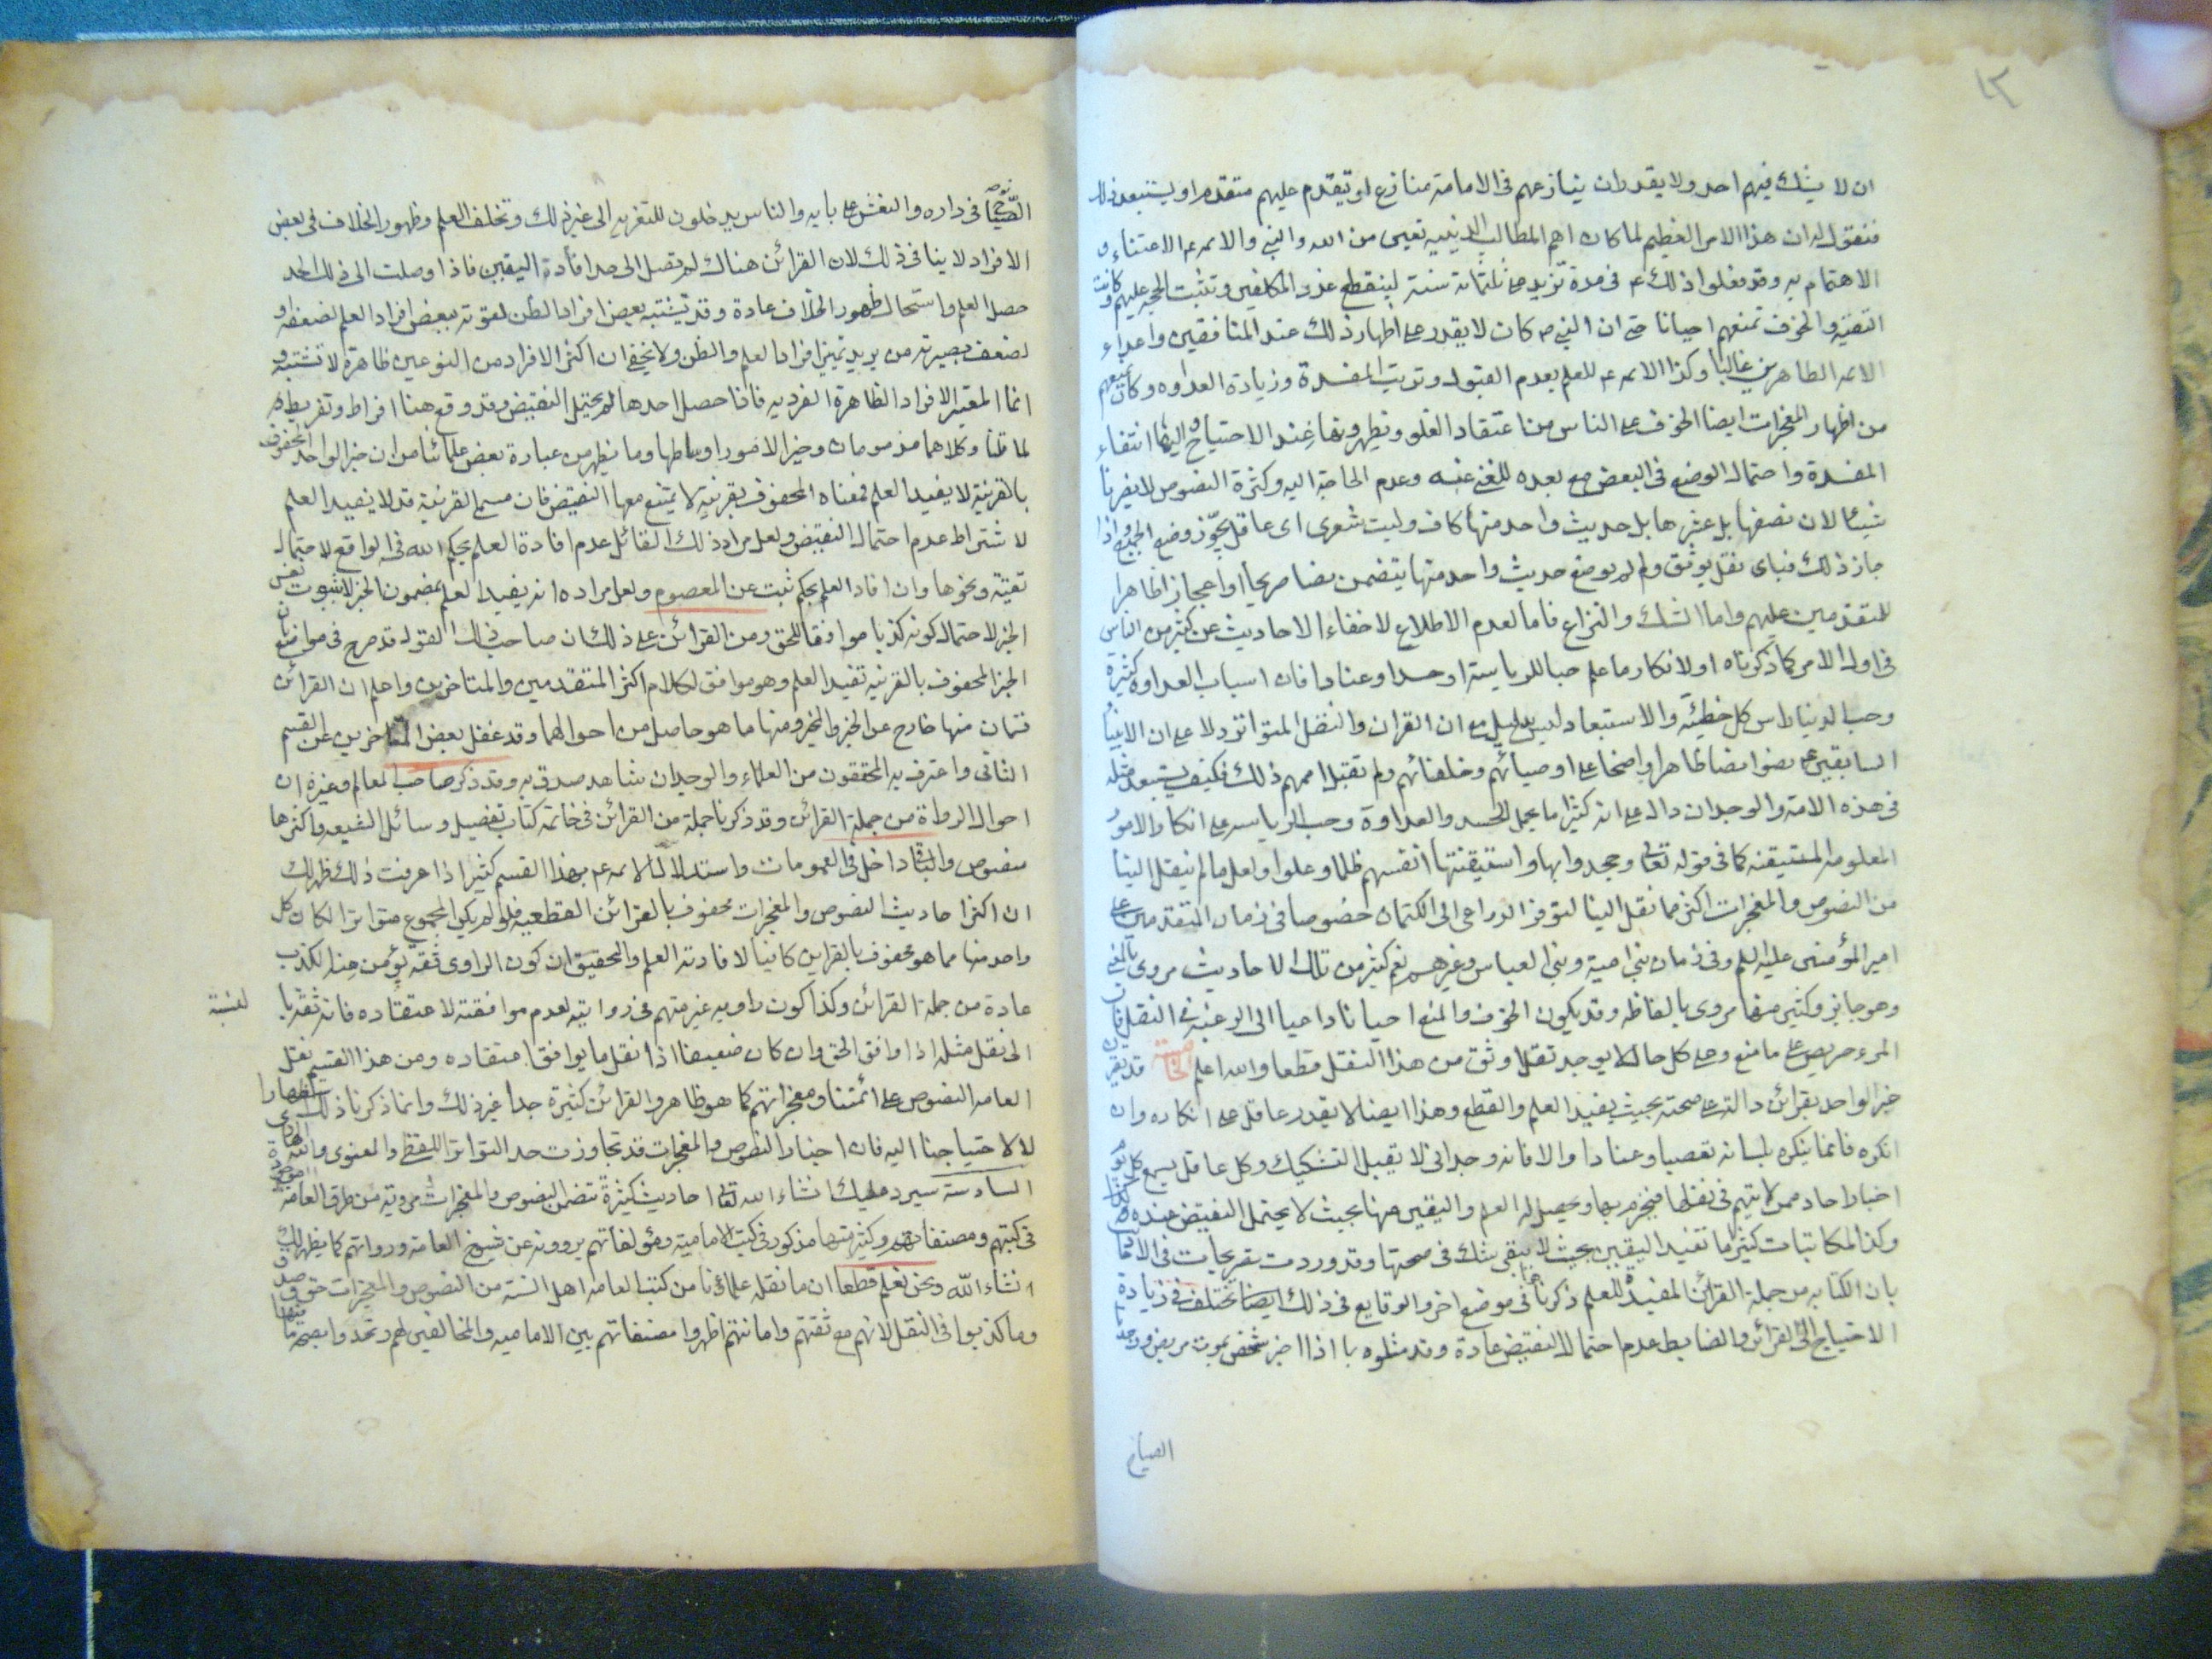 ١٢
ان لا يشك فيهم احد ولا يقدر ان ينازعهم فى الامامة منازع او يتقدم عليهم متقدم او يستبعد ذلك
فنقول له ان هذا الامر العظيم لما كان اهم المطالب الدينيه تعين من الله والنبى والائمه ع الاعتناء و
الاهتمام به وقد فعلوا ذلك ع فى مدة تزيد على ثلثمائة سنة لينقطع عذر المكلفين وتثبت الحجة عليهم وكانت
التقية والخوف تمنعهم احيانا حتى ان النبى ص كان لا يقدر على اظهار ذلك عند المنافقين واعداء
الائمه الطاهرين غالبا وكذا الائمه ع للعلم بعدم القبول وترتب المفسدة وزيادة العداوه وكان يمنعهم
من اظهار المعجزات ايضا الخوف على الناس من اعتقاد الغلو ويظهرونها عند الاحتياج اليها انتفاء
المفسدة واحتمال الوضع فى البعض مع بعده للغنى عنه وعدم الحاجة اليه وكثرة النصوص لا يضرنا
شيئا لان نصفها بل عشرها بل حديث واحد منها كاف وليت شعرى اى عاقل يجوّز وضع الجميع واذا
جاز ذلك فباى نقل يوثق ولم لم يوضع حديث واحد منها يتضمن نصا صريحا او اعجازا ظاهرا
للمتقدمين عليهم واما الشك والنزاع فاما لعدم الاطلاع لاخفاء الاحاديث عن كثير من الناس
فى اول الامر كما ذكرناه او لانكار ما علم حبا للرياسة او حسدا وعنادا فان اسباب العداوه كثيرة
وحب الدنيا راس كل خطيئه والاستبعاد ليس بدليل مع ان القران والنقل المتواتر دلا على ان الانبيا
السابقين ع نصوا نصا ظاهرا واضحا على اوصيائهم وخلفائهم ولم تقبل اممهم ذلك فكيف يستبعد مثله
فى هذه الامة والوجدان دال على انه كثيرا ما يحمل الحسد والعداوة وحب الرياسه على انكار الامور
المعلومه المستيقنه كما فى قوله تعالى وجحدوا بها واستيقنتها انفسهم ظلما وعلوا ولعل ما لم ينقل الينا
من النصوص والمعجزات اكثر مما نقل الينا لتوفر الدواعى الى الكتمان خصوصا فى زمان المتقدمين على
امير المؤمنين عليه السلم وفى زمان بنى امية وبنى العباس وغيرهم نعم كثير من تلك الاحاديث مروى بالمعنى
وهو جايز وكثير منها مروى بالفاظه وقد يكون الخوف والمنع احيانا داعيا الى الرغبه فى النقل فان
المرء حريص على ما منع وعلى كل حال لا يوجد نقل اوثق من هذا النقل قطعا والله اعلم قد يقترن
خبر الواحد بقرائن دالة على صحته بحيث يفيد العلم والقطع وهذا ايضا لا يقدر عاقل على انكاره وان
انكره فانما ينكره بلسانه تعصبا وعنادا والا فانه وجدانى لا تقبل التشكيك وكل عاقل يسمع كل يوم
اخبارا احاد ممن لا يتهم فى نقلها فيجزم بها ويحصل له العلم واليقين منها بحيث لا يحتمل النقيض عنده
وكذا المكاتبات كثيرا ما تفيد اليقين بحيث لا يبقى شك فى صحتها وقد وردت تصريحات فى الاخبار
بان الكتابه من جملة القرائن المفيدة للعلم ذكرناها فى موضع اخر والوقايع فى ذلك ايضا تختلف فى زيادة
الاحتياج الى القرائن والضابط عدم احتمال النقيض عادة وقد مثلوه بما اذا اخبر شخص بموت مريض ووجدنا
الصياح
الصياح فى داره والنعش على بابه والناس يدخلون للتعزيه الى غير ذلك وتخلف العلم وظهور الخلاف فى بعض
الافراد لا ينافى ذلك لان القرائن هناك لم تصل الى حد افادة اليقين فاذا وصلت الى ذلك الحد
حصل العلم واستحال ظهور الخلاف عادة وقد تشتبه بعض افراد الظن لقوته ببعض افراد العلم لضعفه و
لضعف بصيرته من يريد تمييز افراد العلم والظن ولا يخفى ان اكثر الافراد من النوعين ظاهرة لا تشتبه و
انما المعتبر الافراد الظاهرة الفرديه فاذا حصل احدها لم يحتمل النقيض وقد وقع هنا افراط وتفريط
لما قلنا وكلاهما مذمومان وخير الامور اوساطها وما يظهر من عبارة بعض علمائنا من ان خبر الواحد المحفوف
بالقرينة لا يفيد العلم فمعناه المحفوف بقرينة لا يمتنع معها النقيض فان مسمى القرينة قد لا يفيد العلم
لاشتراط عدم احتمال النقيض ولعل مراد ذلك القائل عدم افادة العلم بحكم الله فى الواقع لاحتمال
تقية ونحوها وان افاد العلم بحكم ثبت عن المعصوم ولعل مراده انه يفيد العلم بمضمون الخبر لا بثبوت نفس
الخبر لاحتمال كونه كذبا موافقا للحق ومن القرائن على ذلك ان صاحب ذلك القول قد صرح فى مواضع بان
الخبر المحفوف بالقرينه تفيد العلم وهو موافق لكلام اكثر المتقدمين والمتاخرين واعلم ان القرائن
قسمان منها خارج عن الخبر والمخبر ومنها ما هو حاصل من احوالهما وقد غفل بعض المتاخرين عن القسم
الثانى واعترف به المحققون من العلماء والوجدان شاهد صدق به وقد ذكر صاحب المعالم وغيره ان
احوال الرواة من جملة القرائن وقد ذكرنا جملة من القرائن فى خاتمة كتاب تفصيل وسائل الشيعه واكثرها
منصوص والباقى داخل فى العمومات واستدلال الائمه ع بهذا القسم كثيرا اذا عرفت ذلك ظهر لك
ان اكثر احاديث النصوص والمعجزات محفوف بالقرائن القطعيه فلو لم يكن المجموع متواترا لكان كل
واحد منها مما هو محفوف بالقراين كافيا لافادته العلم والتحقيق ان كون الراوى ثقة يؤمن منه الكذب
عادة من جملة القرائن وكذا كون راويه غير متهم فى روايته لعدم موافقته لاعتقاده فانه ثقة بالنسبة
الى نقل مثله اذا وافق الحق وان كان ضعيفا اذا نقل ما يوافق اعتقاده ومن هذا القسم نقل
العامه النصوص على ائمتنا ومعجزاتهم كما هو ظاهر والقرائن كثيرة جدا غير ذلك وانما ذكرنا ذلك استظهارا
لا لاحتياجنا اليه فان اخبار النصوص والمعجزات قد تجاوزت حد التواتر اللفظى والمعنوى والله الهادى
السادسة سيرد عليك انشاء الله تعالى احاديث كثيرة تتضمن النصوص والمعجزات مروية من طرق العامه موجودة
فى كتبهم ومصنفاتهم وكثير منها مذكور فى كتب الامامية ومؤلفاتهم يروونه عن شيوخ العامة ورواتهم كما يظهر لك
انشاء الله ونحن نعلم قطعا ان ما نقله علماؤنا من كتب العامه اهل السنة من النصوص والمعجزات حق وصدق
وما كذبوا فى النقل لانهم مع ثقتهم وامانتهم اظهروا مصنفاتهم بين الاماميه والمخالفين لهم وتحدوا بصحة ما فيها